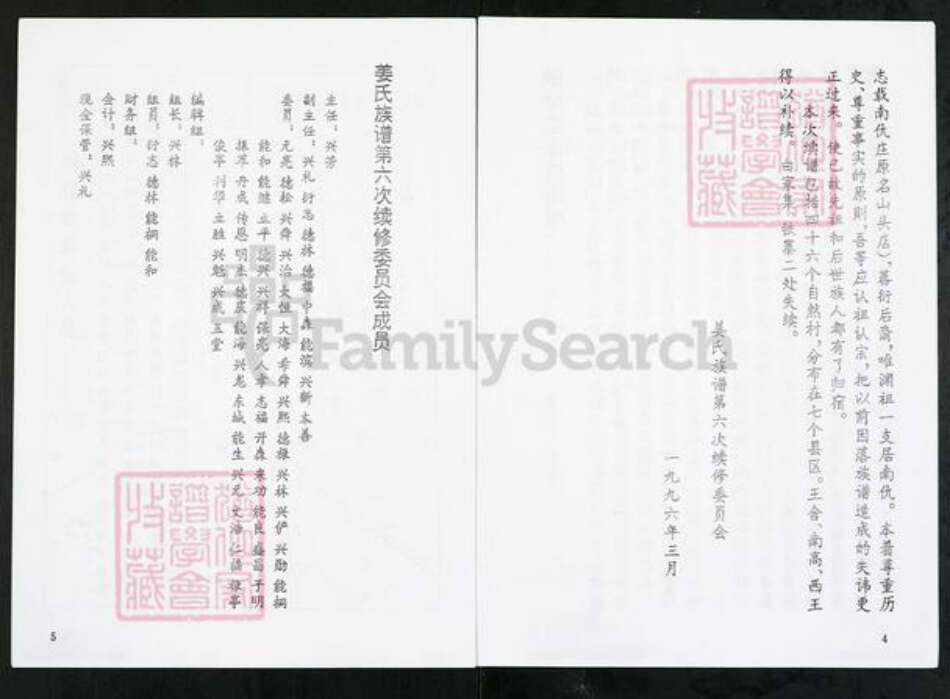 志载南仇庄原名山头店），蕃衍后裔，唯渊祖一支居南仇。本着尊重历
史、尊重事实的原则，吾等应认祖认宗，把以前因落族谱造成的失讳更
正过来。使已故先祖和后世族人都有了归宿。
本次续谱包括四十六个自然村，分布在七个县区。王舍、南高、西王
得以补续。白家集、张寨二处失续。
姜氏族谱第六次续修委员会
一九九六年三月
4
姜氏族谱第六次续修委员会成员
主任：兴芳
副主任：兴礼 衍志 德林 德福 中森 能滨 兴新 本善
委员：元亮 德松 兴舜 兴治 大恒 大海 希舜 兴熙 德禄 兴林 兴俨 兴勋 能搁
能和 能继 立平 德兴 兴祥 保亮 人孝 志福 升森 来功 能良 盛昌 于明
丹成 传恩 明来 德庆 能海 兴龙 东城 能生 兴元 文海 仁福 禄亭
俊亭 利华 立胜 兴魁 兴成 玉堂
编辑组：
组长：兴林
组员：衍志 德林 能搁 能和
财务组：
会计：兴熙
现金保管：兴礼
5
FamilySearch